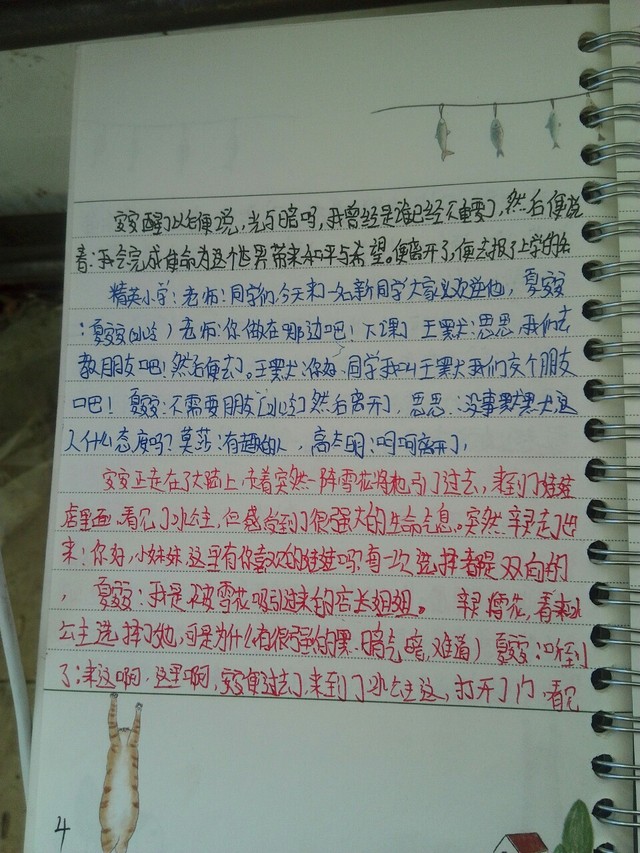 安安醒了以后便说，光与暗吗，我曾经是谁已经不重要了，然后便说
着：我会完成使命为这个世界带来和平与希望。便离开了，便去报了上学的名
精英小学：老师：同学们今天来一名新同学大家欢迎他，夏安安
：夏安安（冰冷）老师：你做在哪边吧！下课了 王默：思思，我们去
教朋友吧！然后便去了。王默：你好，同学我叫王默我们交个朋友
吧！ 夏安安：不需要朋友（冰冷）然后离开了，思思：没事默默，这
人什么态度吗？莫莎：有趣的人，高太明：呵呵离开了，
安安正走在了大路上，走着突然一阵雪花将她引了过去，来到了娃娃
店里面，看见了冰公主，但感受到了很强大的生命气息。突然辛灵走了出
来！你好，小妹妹，这里有你喜欢的娃娃吗？每一次选择都是双向的
， 夏安安：我是被雪花吸引进来的店长姐姐。 辛灵：雪花，看来冰
公主选择了她，可是为什么有很强的黑暗气 难道） 夏安安：听到
了：来这啊，这里啊，安安便过去了，来到了冰公主这，打开了门 看见
4